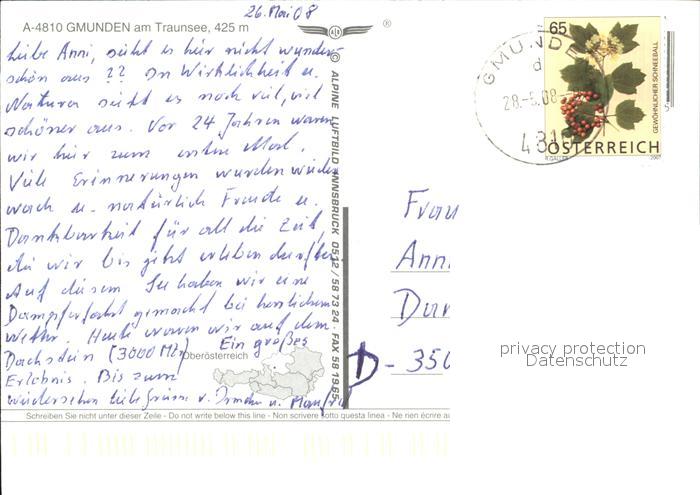 26. Mai 08
A-4810 GMUNDEN am Traunsee, 425 m
Liebe Anni, sieht es hier nicht wunder-
schön aus ?? In Wirklichkeit u.
Natura sieht es noch viel, viel
schöner aus. Vor 24 Jahren waren
wir hier zum ersten Mal.
Viele Erinnerungen wurden wieder
wach u. natürlich Freude u.
Dankbarkeit für all die Zeit,
die wir bis jetzt erleben durften.
Auf diesem See haben wir eine
Dampferfahrt gemacht bei herrlichem
Wetter. Heute waren wir auf dem
Dachstein (3000 Mt) Ein großes
Erlebnis. Bis zum
wiedersehen liebe Grüsse v. Irmchen u. Manfred
Oberösterreich
© ALPINE LUFTBILD INNSBRUCK 0512 / 58 73 24 · FAX 58 19 65
65
GEWÖHNLICHER SCHNEEBALL
ÖSTERREICH
2007
GMUNDE
28.-5.08-
481
Frau
Anni
D - 350
privacy protection
Datenschutz
Schreiben Sie nicht unter dieser Zeile - Do not write below this line - Non scrivere sotto questa linea - Ne rien écrire au